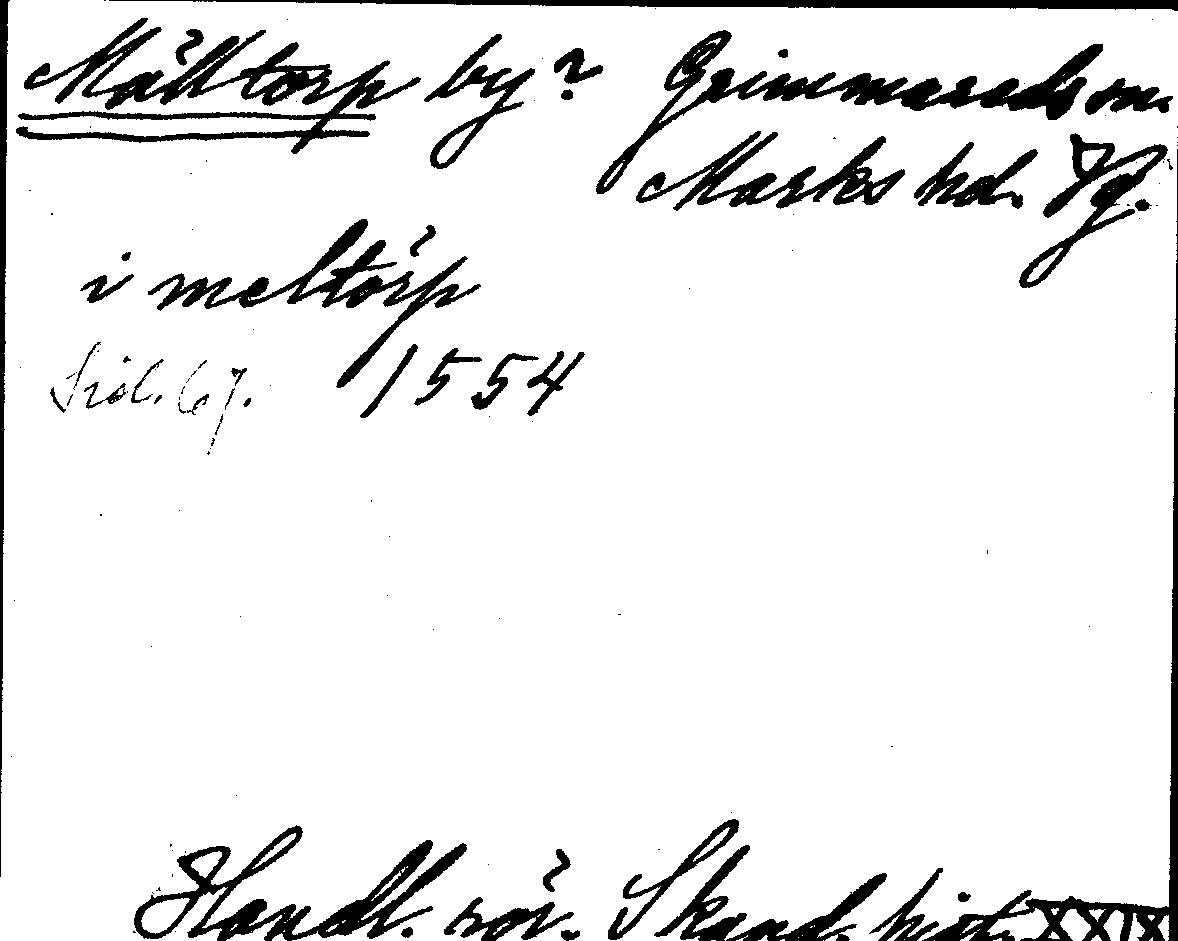 Mälltorp by? Grimmareds sn.
Marks hd. Vg.
i meltörp
Sid. 67. 1554
Handl. rör. Skand. hist. XXIX